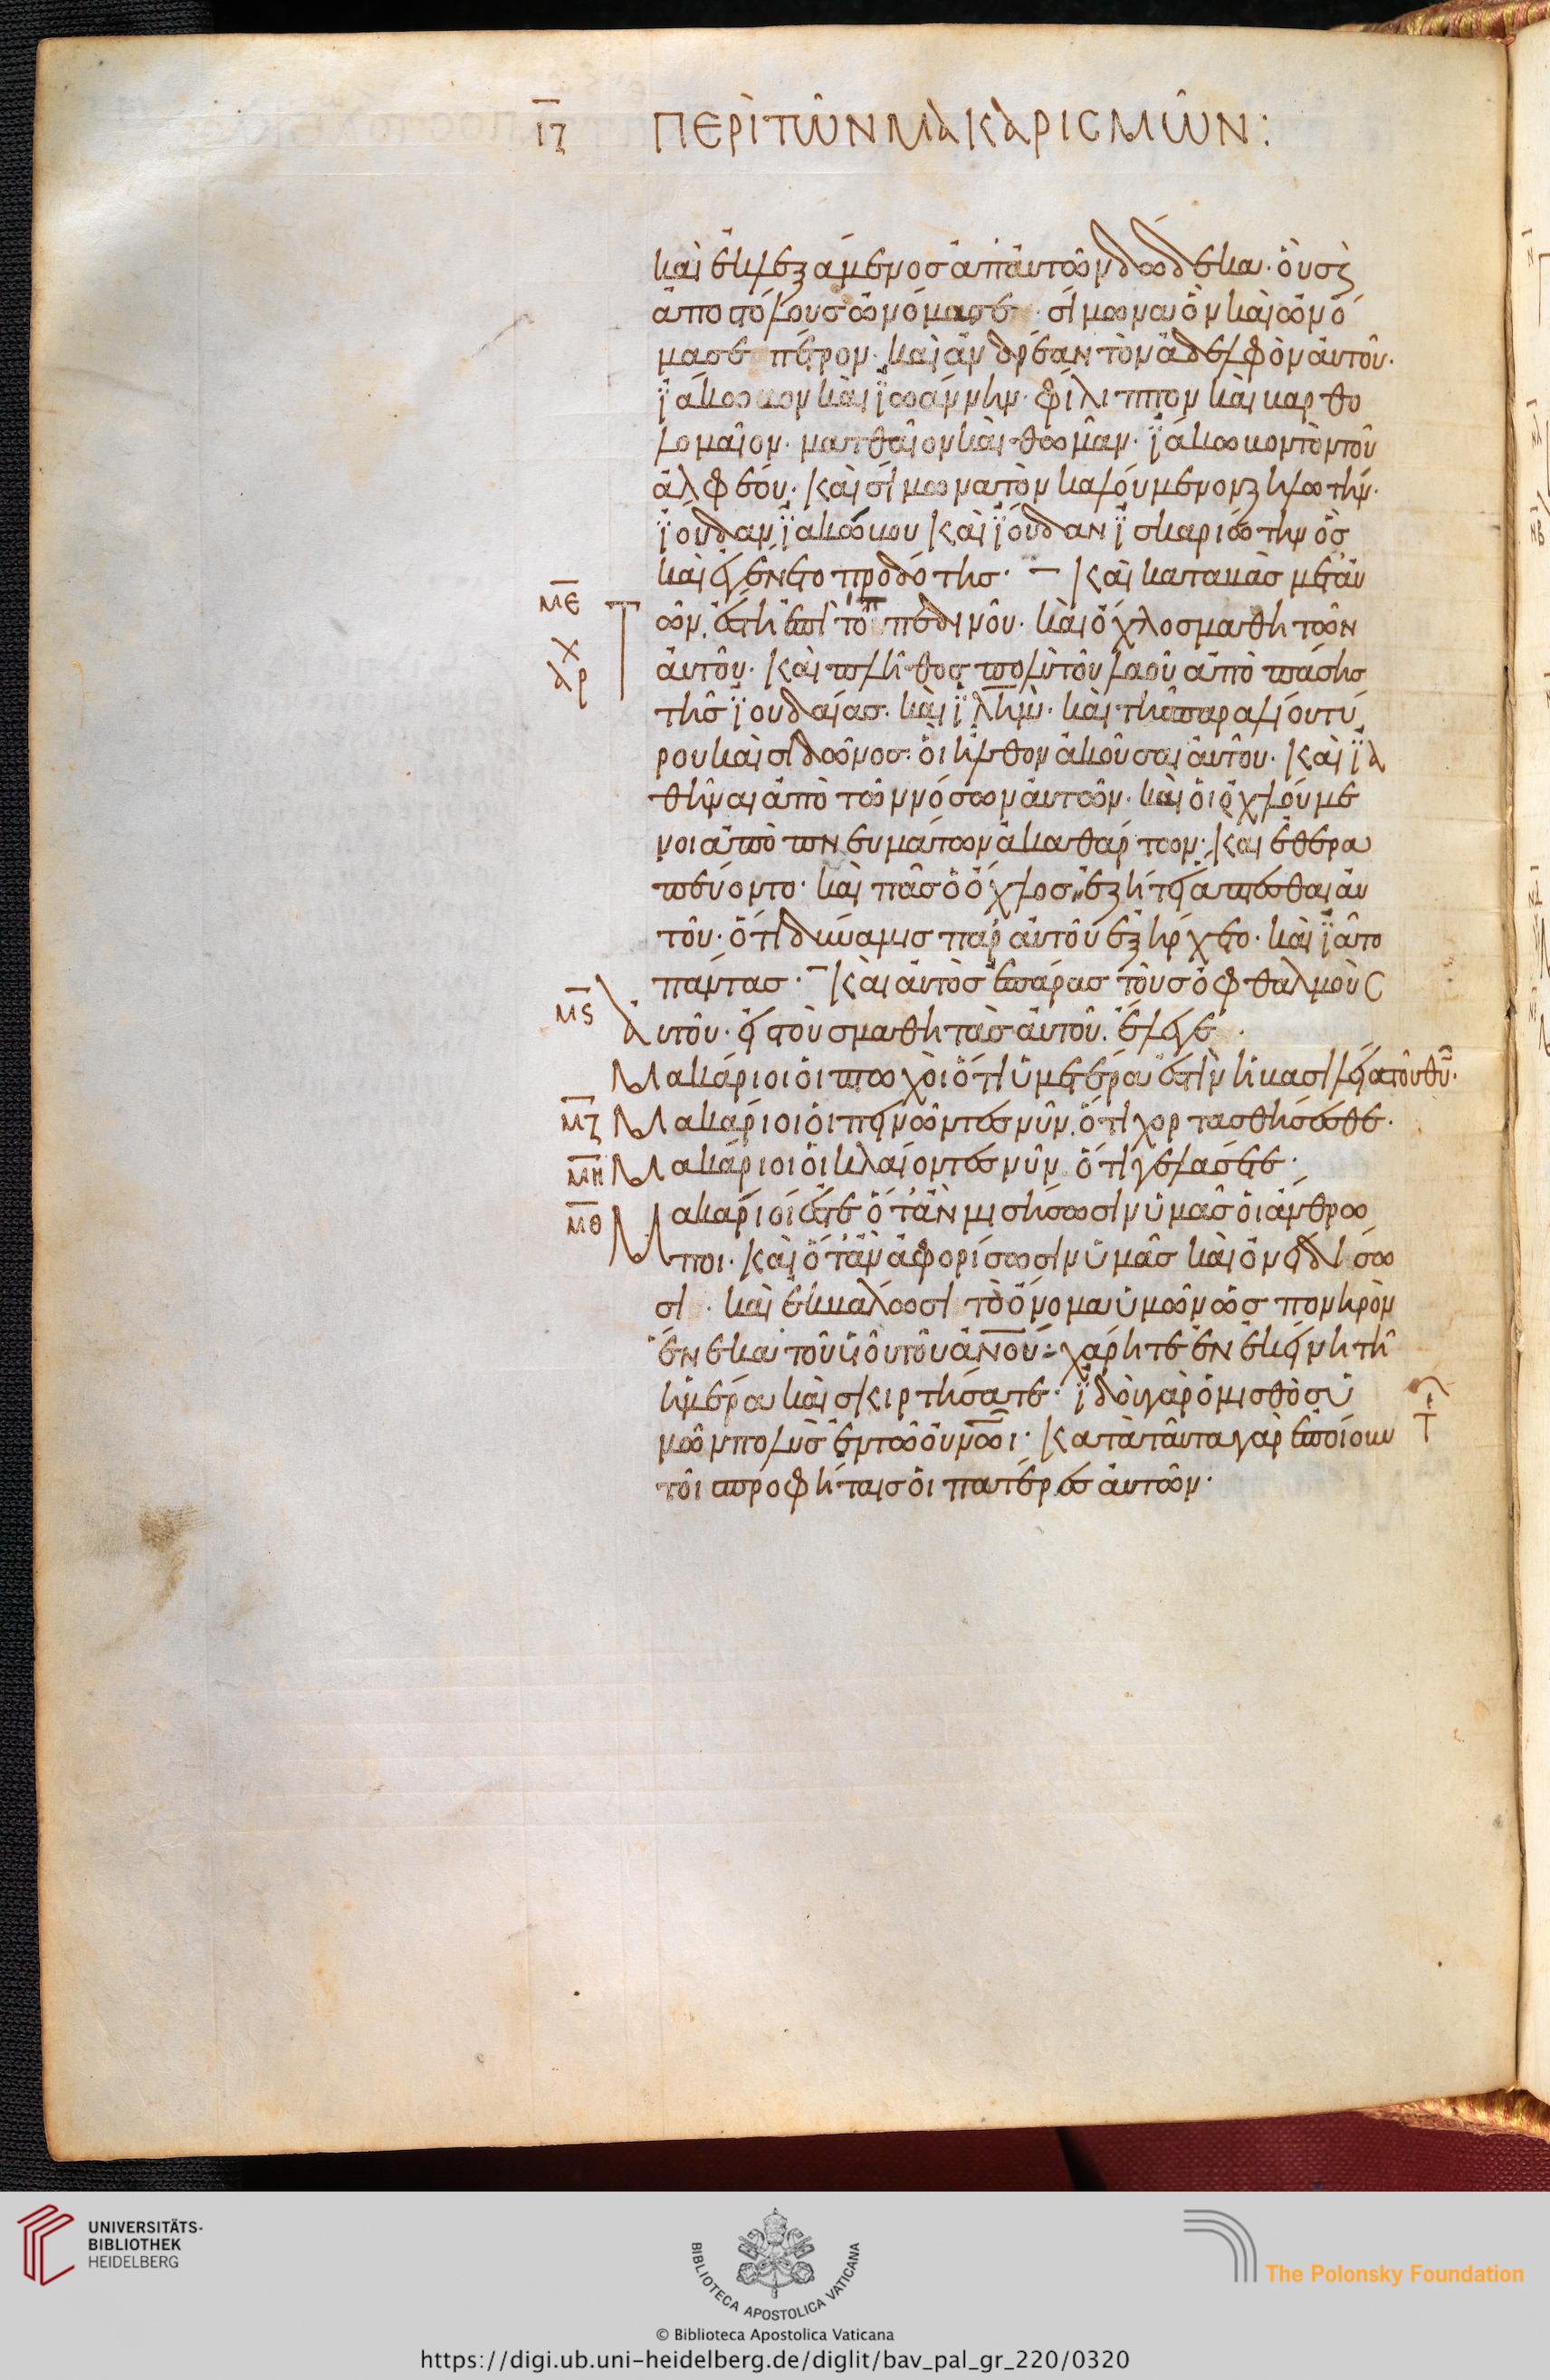 ΙΖ ΠΕΡῚ ΤῶΝ ΜΑΚΑΡΙΣΜῶΝ:
καὶ ἐκλεξάμενος ἀπ' ἀυτῶν δώδεκα· ὃυς κ(αὶ)
ἀποστόλους ὠνόμασε· σίμωνα ὃν καὶ ὠνό
μασε πέτρον· καὶ ἀνδρέαν τὸν ἀδελφὸν ἀυτοῦ·
ϊάκωβον καὶ ϊωάννην· φίλιππον καὶ βαρθο
λομαῖον· ματθαῖον καὶ θωμᾶν· ϊάκωβον τὸν τοῦ
ἀλφέου· καὶ σίμωνα τὸν καλόυμενον ζηλωτήν·
ϊούδαν ϊακώβου καὶ ϊούδαν ϊσκαριώτην ὃς
καὶ ἐγένετο προδότης· καὶ καταβὰς μετ' ἀυ
ΜΕ
ῶν, ἔστη ἐπὶ τό̂π πεδινοῦ· καὶ ὄχλος μαθητῶν
Χ
ΑΡ
ἀυτοῦ· καὶ πλῆθος πολὺ τοῦ λαοῦ ἀπὸ πάσης
τῆς ϊουδαίας· καὶ ϊλημ̀· καὶ τῆς παραλίου τύ
ρου καὶ σιδῶνος· ὃι ἦλθον ἀκοῦσαι ἀυτοῦ· καὶ ϊα
θῆναι ἀπὸ τῶν νόσων ἀυτῶν· καὶ ὁι ὀχλούμε
νοι ἀπὸ πνευμάτων ἀκαθάρτων· καὶ ἐθερα
πεύοντο· καὶ πᾶς ὁ ὄχλος ἐζήτει ἅπτεσθαι ἀυ
τοῦ· ὅτι δύναμις παρ' ἀυτοῦ ἐξήρχετο· καὶ ϊᾶτο
πάντας· καὶ ἀυτὸς ἐπάρας τοὺς ὀφθαλμοὺς
ΜϚ
ἀυτοῦ· εἰς τοὺς μαθητὰς ἀυτοῦ, ἔλεγε·
Μακάριοι ὁι πτωχοὶ ὅτι ὑμετέρα ἐστὶν ἡ βασιλεία τοῦ θυ̅·
ΜΖ Μακάριοι ὁι πεινῶντες νῦν, ὅτι χορτασθήσεσθε·
ΜΗ Μακάριοι ὁι κλαίοντες νῦν ὅτι γελάσετε·
ΜΘ Μακάριοί ἐστε ὅτ' ἂν μισήσωσιν ὑμᾶς ὁι ἄνθρω
ποι· καὶ ὅτ' ἂν ἀφορίσωσιν ὑμᾶς καὶ ὀνειδίσω
σι· καὶ ἐκβάλωσι τὸ ὄνομα ὑμῶν ὡς πονηρὸν
ἕνεκα τοῦ ὑιοῦ τοῦ ἀν̅ου· χάρητε ἐν ἐκείνη τῆ
ἡμέρα καὶ σκιρτήσατε· ϊδοὺ γὰρ ὁ μισθὸς ὑ
μῶν πολὺς ἐν τῶ οὐνῶι· κατὰ τᾶυτα γὰρ ἐποίουν
Τ
τοῖ προφήταις ὁι πατέρες ἀυτῶν·
UNIVERSITÄTS-
BIBLIOTHEK
HEIDELBERG
BIBLIOTECA APOSTOLICA VATICANA
The Polonsky Foundation
© Biblioteca Apostolica Vaticana
https://digi.ub.uni-heidelberg.de/diglit/bav_pal_gr_220/0320